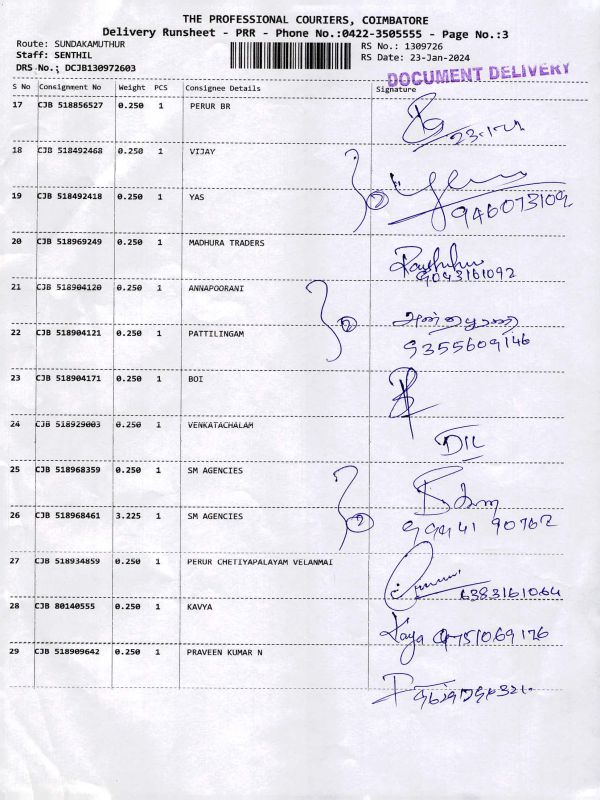 THE PROFESSIONAL COURIERS, COIMBATORE
Delivery Runsheet - PRR - Phone No.:0422-3505555 - Page No.:3
Route: SUNDAKAMUTHUR
Staff: SENTHIL
DRS No.; DCJB130972603
RS No.: 1309726
RS Date: 23-Jan-2024
DOCUMENT DELIVERY
S No Consignment No Weight PCS Consignee Details Signature
17 CJB 518856527 0.250 1 PERUR BR
18 CJB 518492468 0.250 1 VIJAY
19 CJB 518492418 0.250 1 YAS
946073109
20 CJB 518969249 0.250 1 MADHURA TRADERS
9043161092
21 CJB 518904120 0.250 1 ANNAPOORANI
2
22 CJB 518904121 0.250 1 PATTILINGAM
9355609146
23 CJB 518904171 0.250 1 BOI
24 CJB 518929003 0.250 1 VENKATACHALAM
DIL
25 CJB 518968359 0.250 1 SM AGENCIES
26 CJB 518968461 3.225 1 SM AGENCIES
2
99441 90762
27 CJB 518934859 0.250 1 PERUR CHETIYAPALAYAM VELANMAI
6383161064
28 CJB 80140555 0.250 1 KAVYA
29 CJB 518909642 0.250 1 PRAVEEN KUMAR N